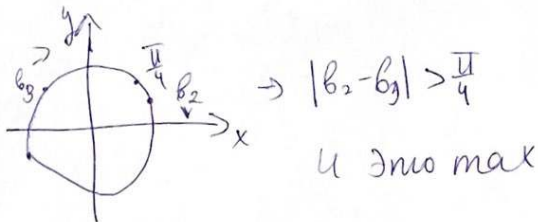 y
π/4
b₃
b₂
x
→ |b₂-b₃| > π/4
и это max